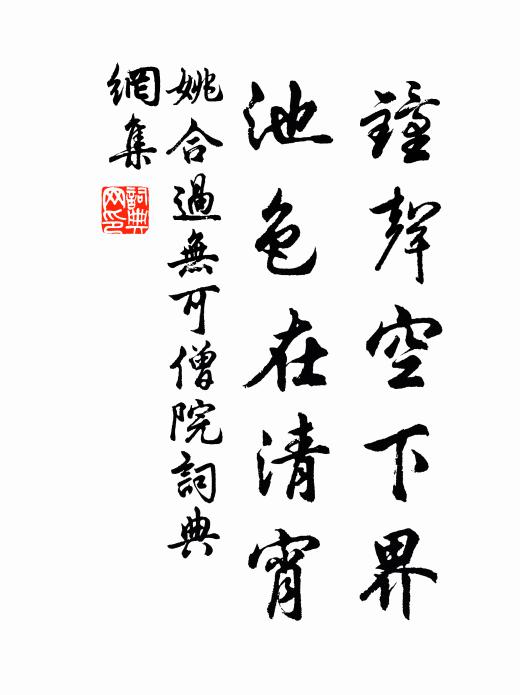 鐘聲空下界
池色在清宵
姚合過無可僧院詞典
網集
詞典網印